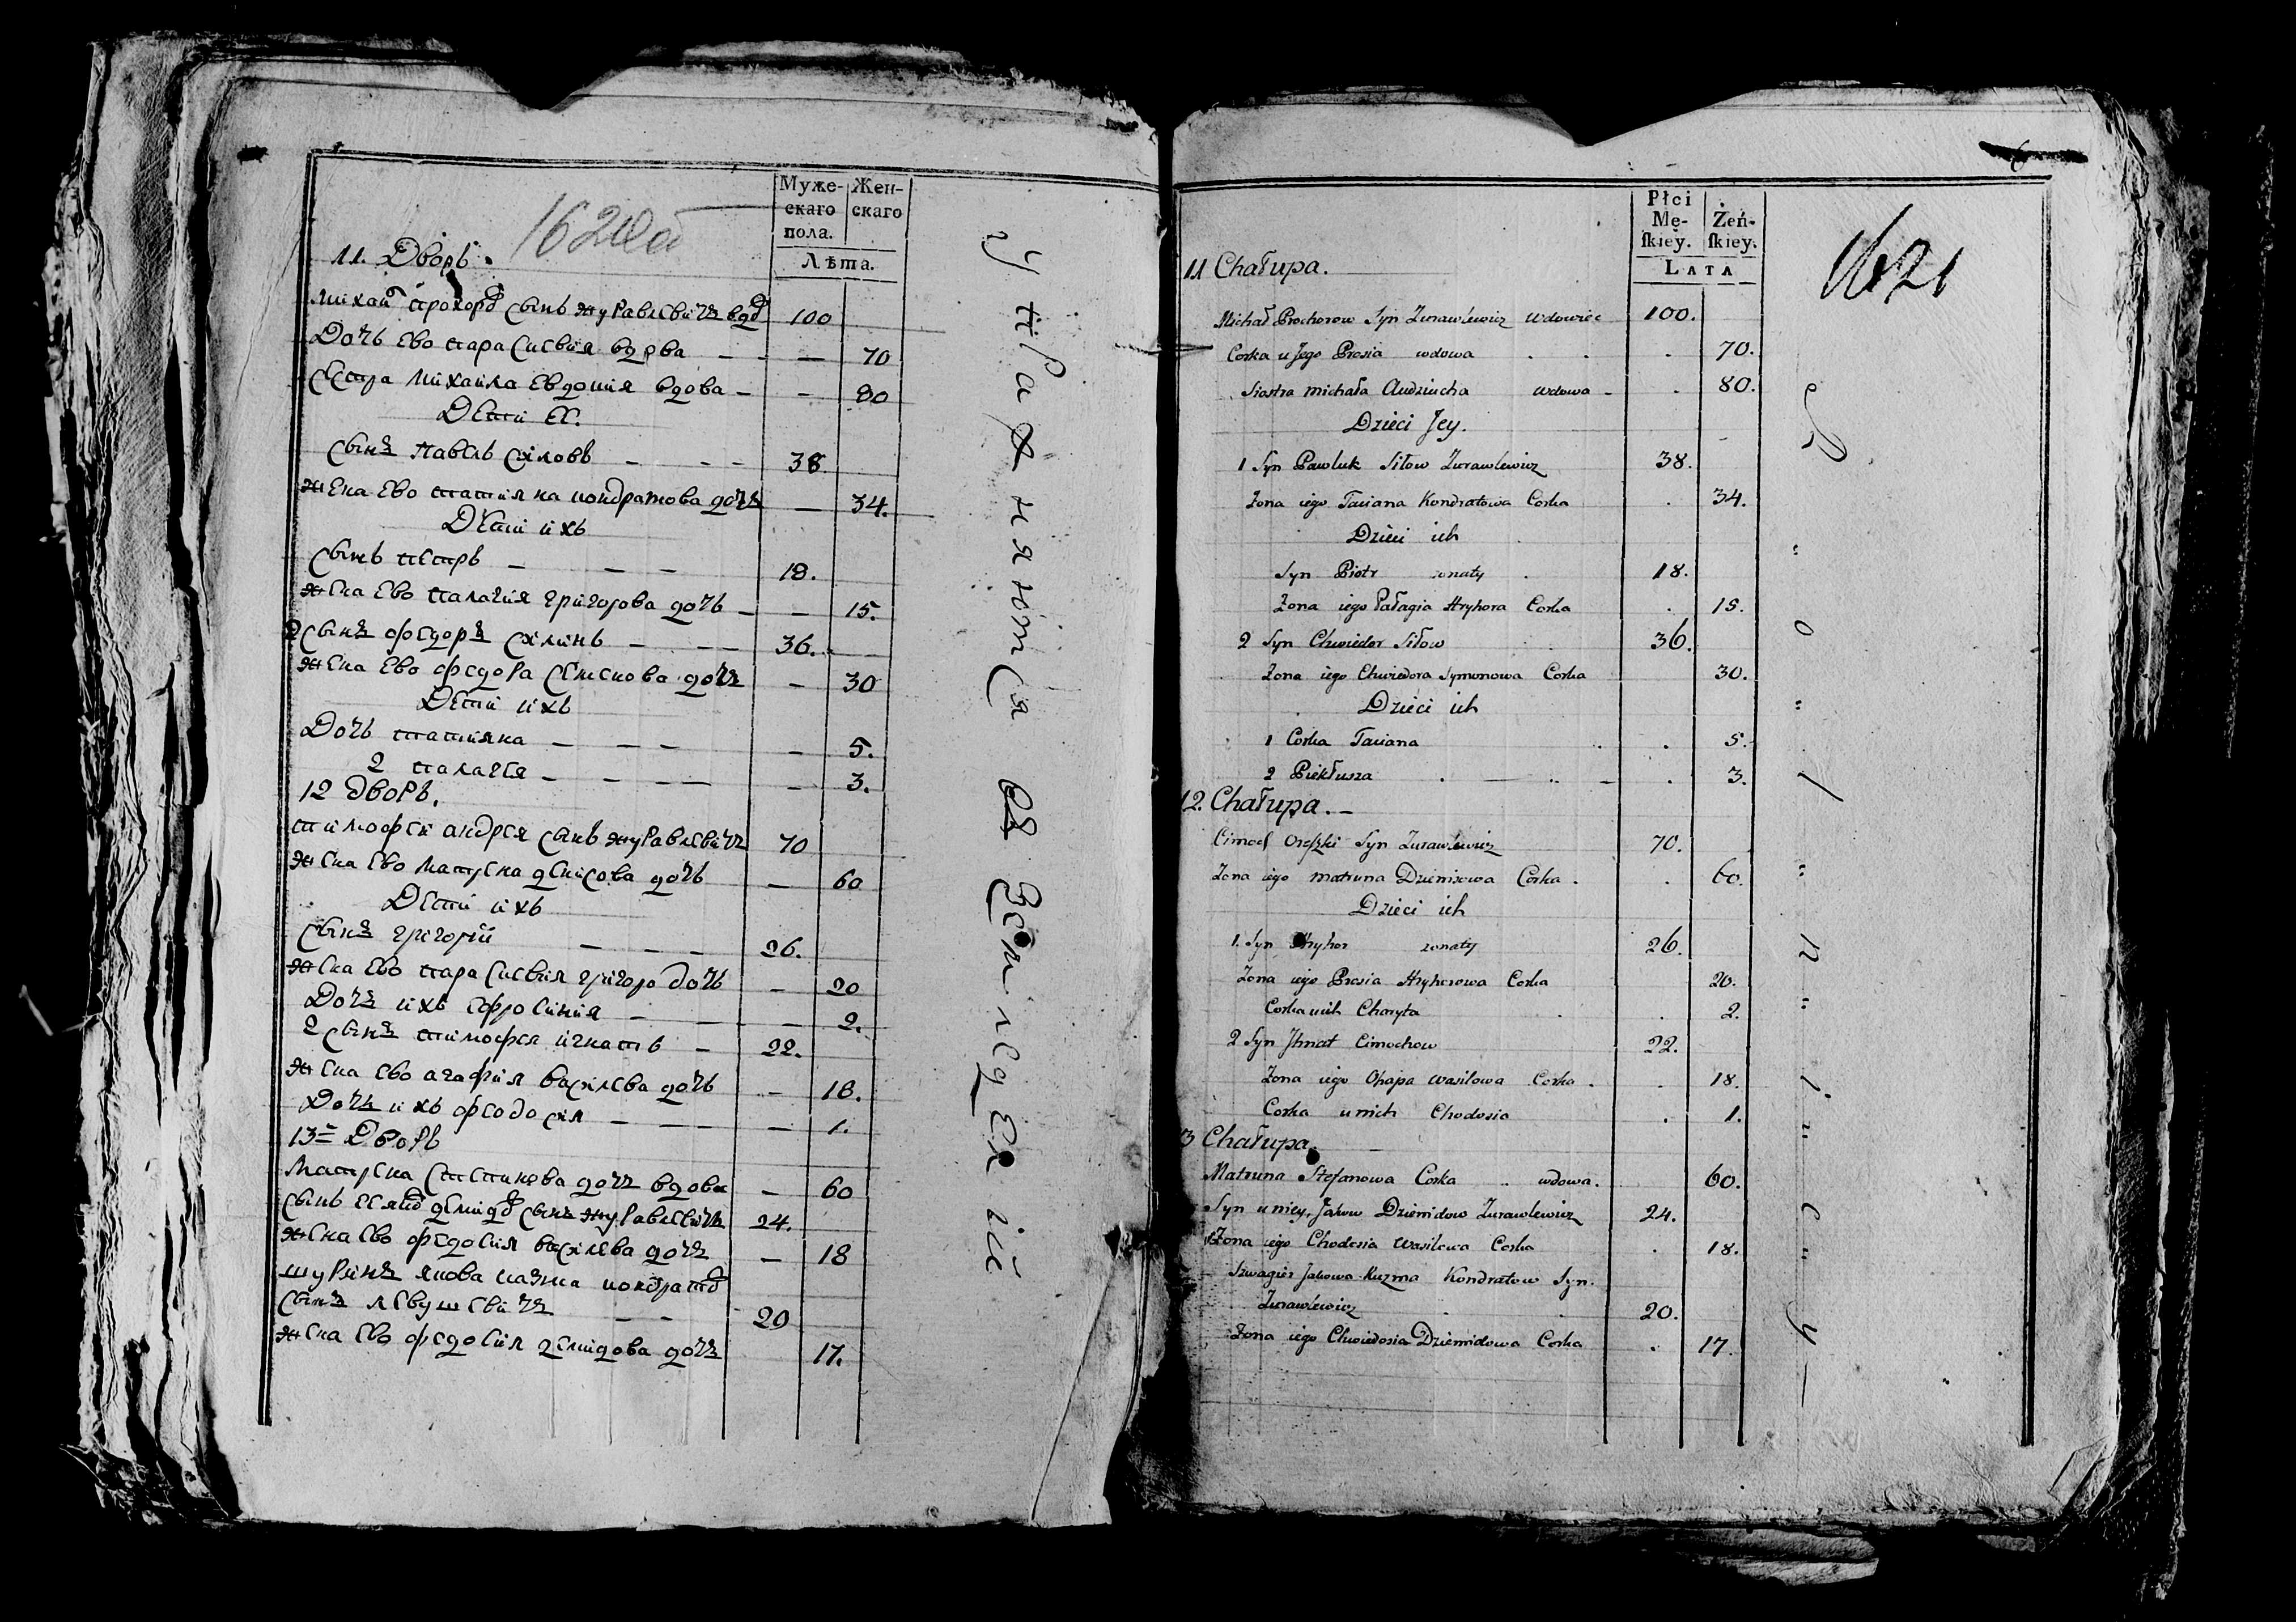 Муже-
скаго
пола.
Жен-
скаго
Лѣта.
11. Дворъ.
Михайл Прохоров сынъ Журавлевичъ вдов 100
Дочь ево Парасковия вдова — — — 70
Сестра Михаила Евдокия вдова — — 80
Дети ее.
Сынъ Павелъ Силовъ — — — 38.
Жена ево Татияна Кондратова дочъ — 34.
Дети ихъ
Сынъ Петръ — — — 18.
Жена ево Палагия Григорова дочь — — 15.
2 Сынъ Федоръ Силинъ — — — 36.
Жена ево Федора Семенова дочъ — 30
Дети ихъ
Дочь Татияна — — — — 5.
2 Палагея — — — — 3.
12 Дворъ.
Тимофей Андрея сынъ Журавлевичъ 70
Жена ево Матрена Денисова дочь — 60
Дети ихъ
Сынъ Григорий — — — 26.
Жена ево Парасковия Григоро дочь — 20
Дочъ ихъ Ефросиния — — — 2.
2 Сынъ Тимофея Игнатъ — 22.
Жена ево Агафия Василева дочь — 18.
Дочь ихъ Феодосия — — — — 1.
13 Дворъ
Матрена Степанова дочъ вдова — 60
Сынъ Демидов сынъ Журавлевичъ 24.
Жена ево Федосия Василева дочъ — 18
Шуринъ Якова Казма Кондратов
сынъ Левушевичъ — — 20
Жена ево Федосия Демидова дочъ 17.
Упражняются въ Земледелiи
Płci
Mę-
ſkiey.
Żeń-
ſkiey.
LATA
1621
11 Chałupa.
Michał Prochorow Syn Zurawlewicz wdowiec 100.
Corka u Jego Prosia wdowa 70.
Siostra Michała Audziucha wdowa - 80.
Dzieci Jey.
1 Syn Pawluk Siłow Zurawlewicz 38.
Zona iego Taciana Kondratowa Corka 34.
Dzieci ich
Syn Piotr zonaty 18.
Zona iego Pałagia Hryhora Corka 15.
2 Syn Chwiedor Siłow 36.
Zona iego Chwiedora Symonowa Corka 30.
Dzieci ich
1 Corka Taciana 5.
2 Piekłusza 3.
12. Chałupa. —
Cimoch Syn Zurawlewicz 70.
Zona iego Matruna Dzienisowa Corka. 60.
Dzieci ich
1. Syn Hryhor zonaty 26.
Zona iego Prosia Hryhorowa Corka 20.
Corka u ich Charyta 2.
2 Syn Jhnat Cimochow 22.
Zona iego Ohapa Wasilowa Corka. 18.
Corka u nich Chodosia 1.
3 Chałupa.
Matruna Stefanowa Corka wdowa. 60.
Syn u niey Jakow Dziemidow Zurawlewicz 24.
Zona iego Chodosia Wasilowa Corka 18.
Szwagier Jakowa Kuzma Kondratow Syn.
Zurawlewicz 20.
Zona iego Chwiedosia Dziemidowa Corka 17.
R o l n i c y —